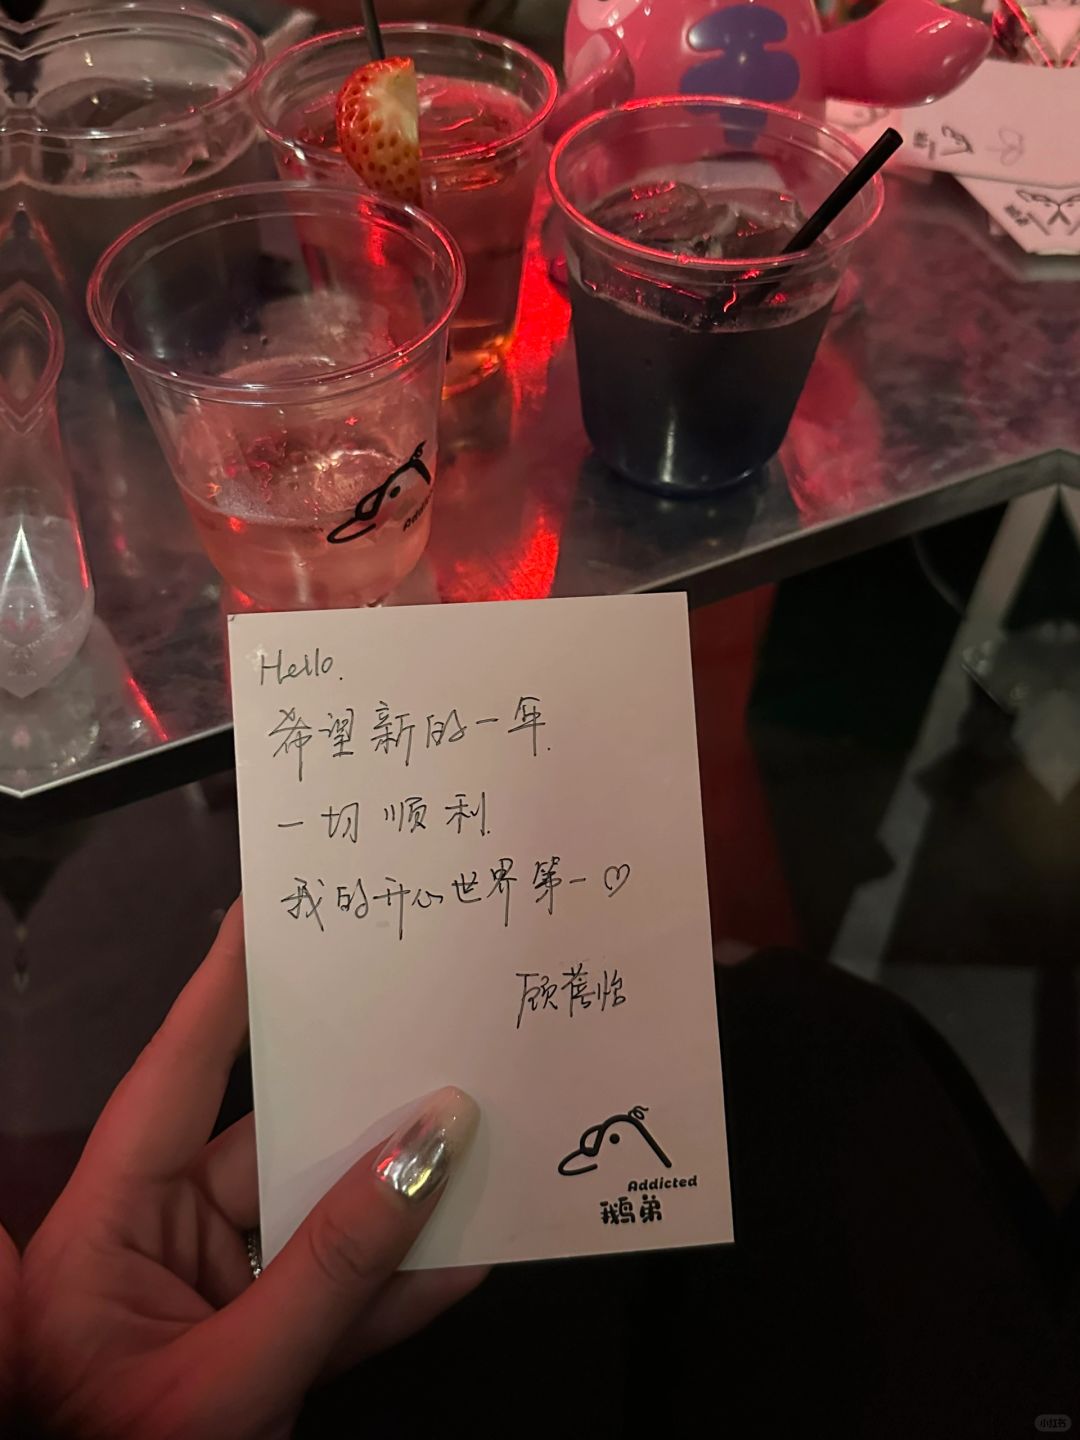 Hello.
希望新的一年.
一切顺利.
我的开心世界第一♡
顾蓓怡
Addicted
鹅弟
小红书